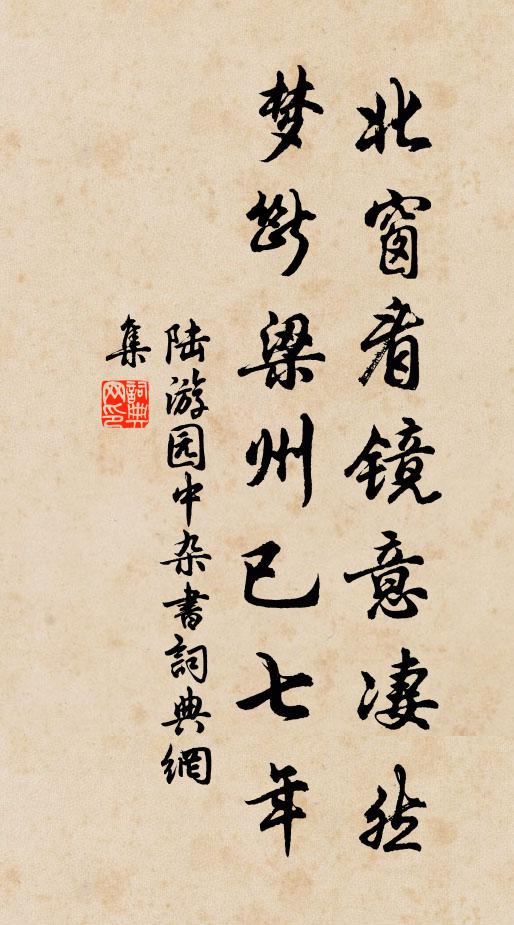 北窗看镜意凄然
梦断梁州已七年
陆游园中杂书詞典網
集
詞典网印